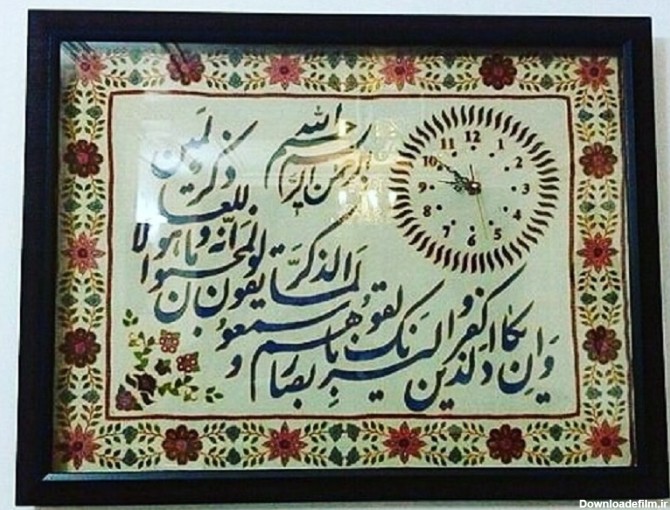 بسم الله الرحمن الرحیم
وَاِن یکاد الذین کفروا لیزلقونک
بابصارهم لما سمعوا الذکر و
یقولون انه لمجنون
وما هو الا ذکر للعالمین
12
1
2
3
4
5
6
7
8
9
10
11
Downloadefilm.ir